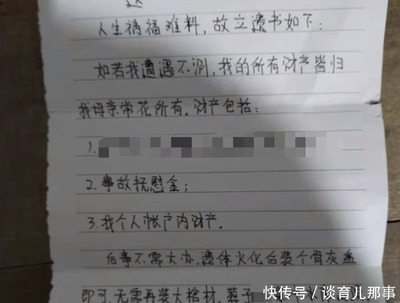 人生祸福难料，故立遗书如下：
如若我遭遇不测，我的所有财产皆归
我母亲常花所有，财产包括：
1.
2.事故抚慰金；
3.我个人帐户内财产.
后事不需大办，遗体火化后装个骨灰盒
即可，无需再装大棺材，葬于
快传号/谈育儿那事